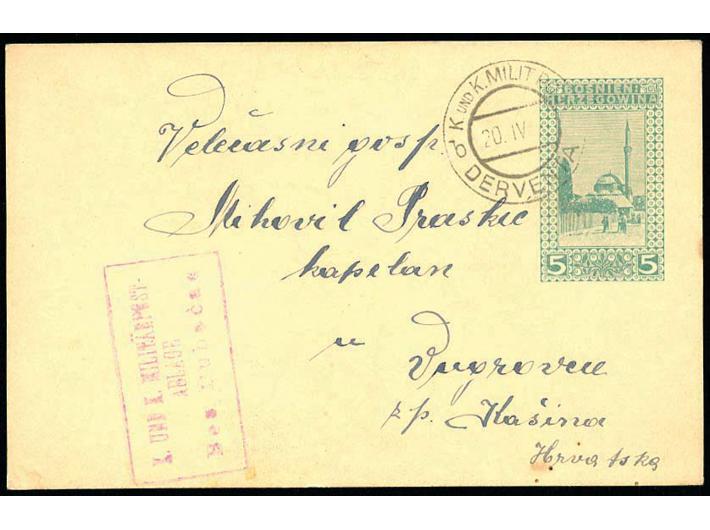 K UND K. MILIT. P
20. IV
DERVENTA
BOSNIEN-
HERZEGOWINA
5 5
Velečasni gosp.
Mihovil Praskic
kapelan
u Vugrovcu
z.p. Kašina
Hrvatska
K. UND K. MILITÄRPOST-
ABLAGE
Bos. Dubočac